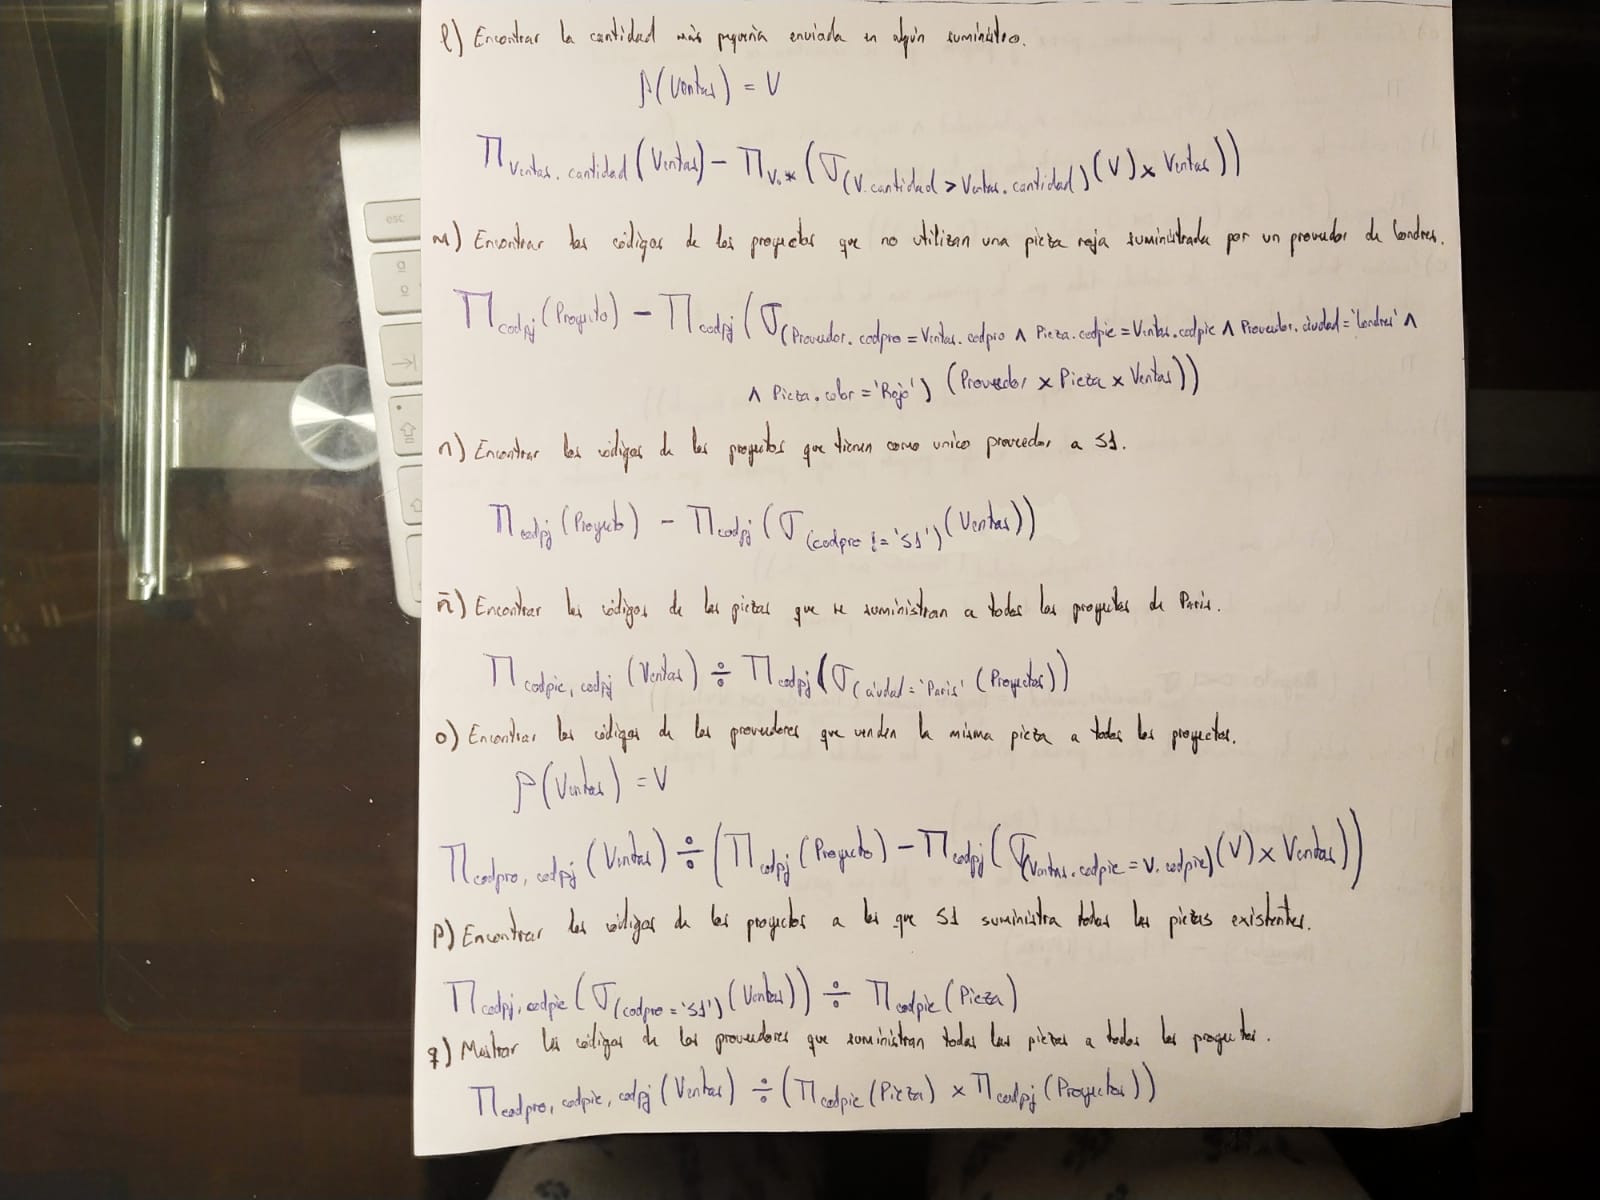 esc
l) Encontrar la cantidad más pequeña enviada en algún suministro.
ρ(Ventas) = V
Π Ventas.cantidad (Ventas) - Π V.* (σ (V.cantidad > Ventas.cantidad) (V) x Ventas))
m) Encontrar los códigos de los proyectos que no utilizan una pieza roja suministrada por un proveedor de Londres.
Π codpj (Proyecto) - Π codpj (σ (Proveedor.codpro = Ventas.codpro ∧ Pieza.codpie = Ventas.codpie ∧ Proveedor.ciudad = 'Londres' ∧
∧ Pieza.color = 'Rojo') (Proveedor x Pieza x Ventas))
n) Encontrar los códigos de los proyectos que tienen como unico proveedor a S1.
Π codpj (Proyecto) - Π codpj (σ (codpro != 'S1') (Ventas))
ñ) Encontrar los códigos de las piezas que se suministran a todos los proyectos de Paris.
Π codpie, codpj (Ventas) ÷ Π codpj (σ (ciudad = 'Paris' (Proyectos))
o) Encontrar los códigos de los proveedores que venden la misma pieza a todos los proyectos.
ρ(Ventas) = V
Π codpro, codpj (Ventas) ÷ (Π codpj (Proyecto) - Π codpj (σ (Ventas.codpie = V.codpie) (V) x Ventas))
p) Encontrar los códigos de los proyectos a los que S1 suministra todas las piezas existentes.
Π codpj, codpie (σ (codpro = 'S1') (Ventas)) ÷ Π codpie (Pieza)
q) Mostrar los códigos de los proveedores que suministran todas las piezas a todos los proyectos.
Π codpro, codpie, codpj (Ventas) ÷ (Π codpie (Pieza) x Π codpj (Proyectos))